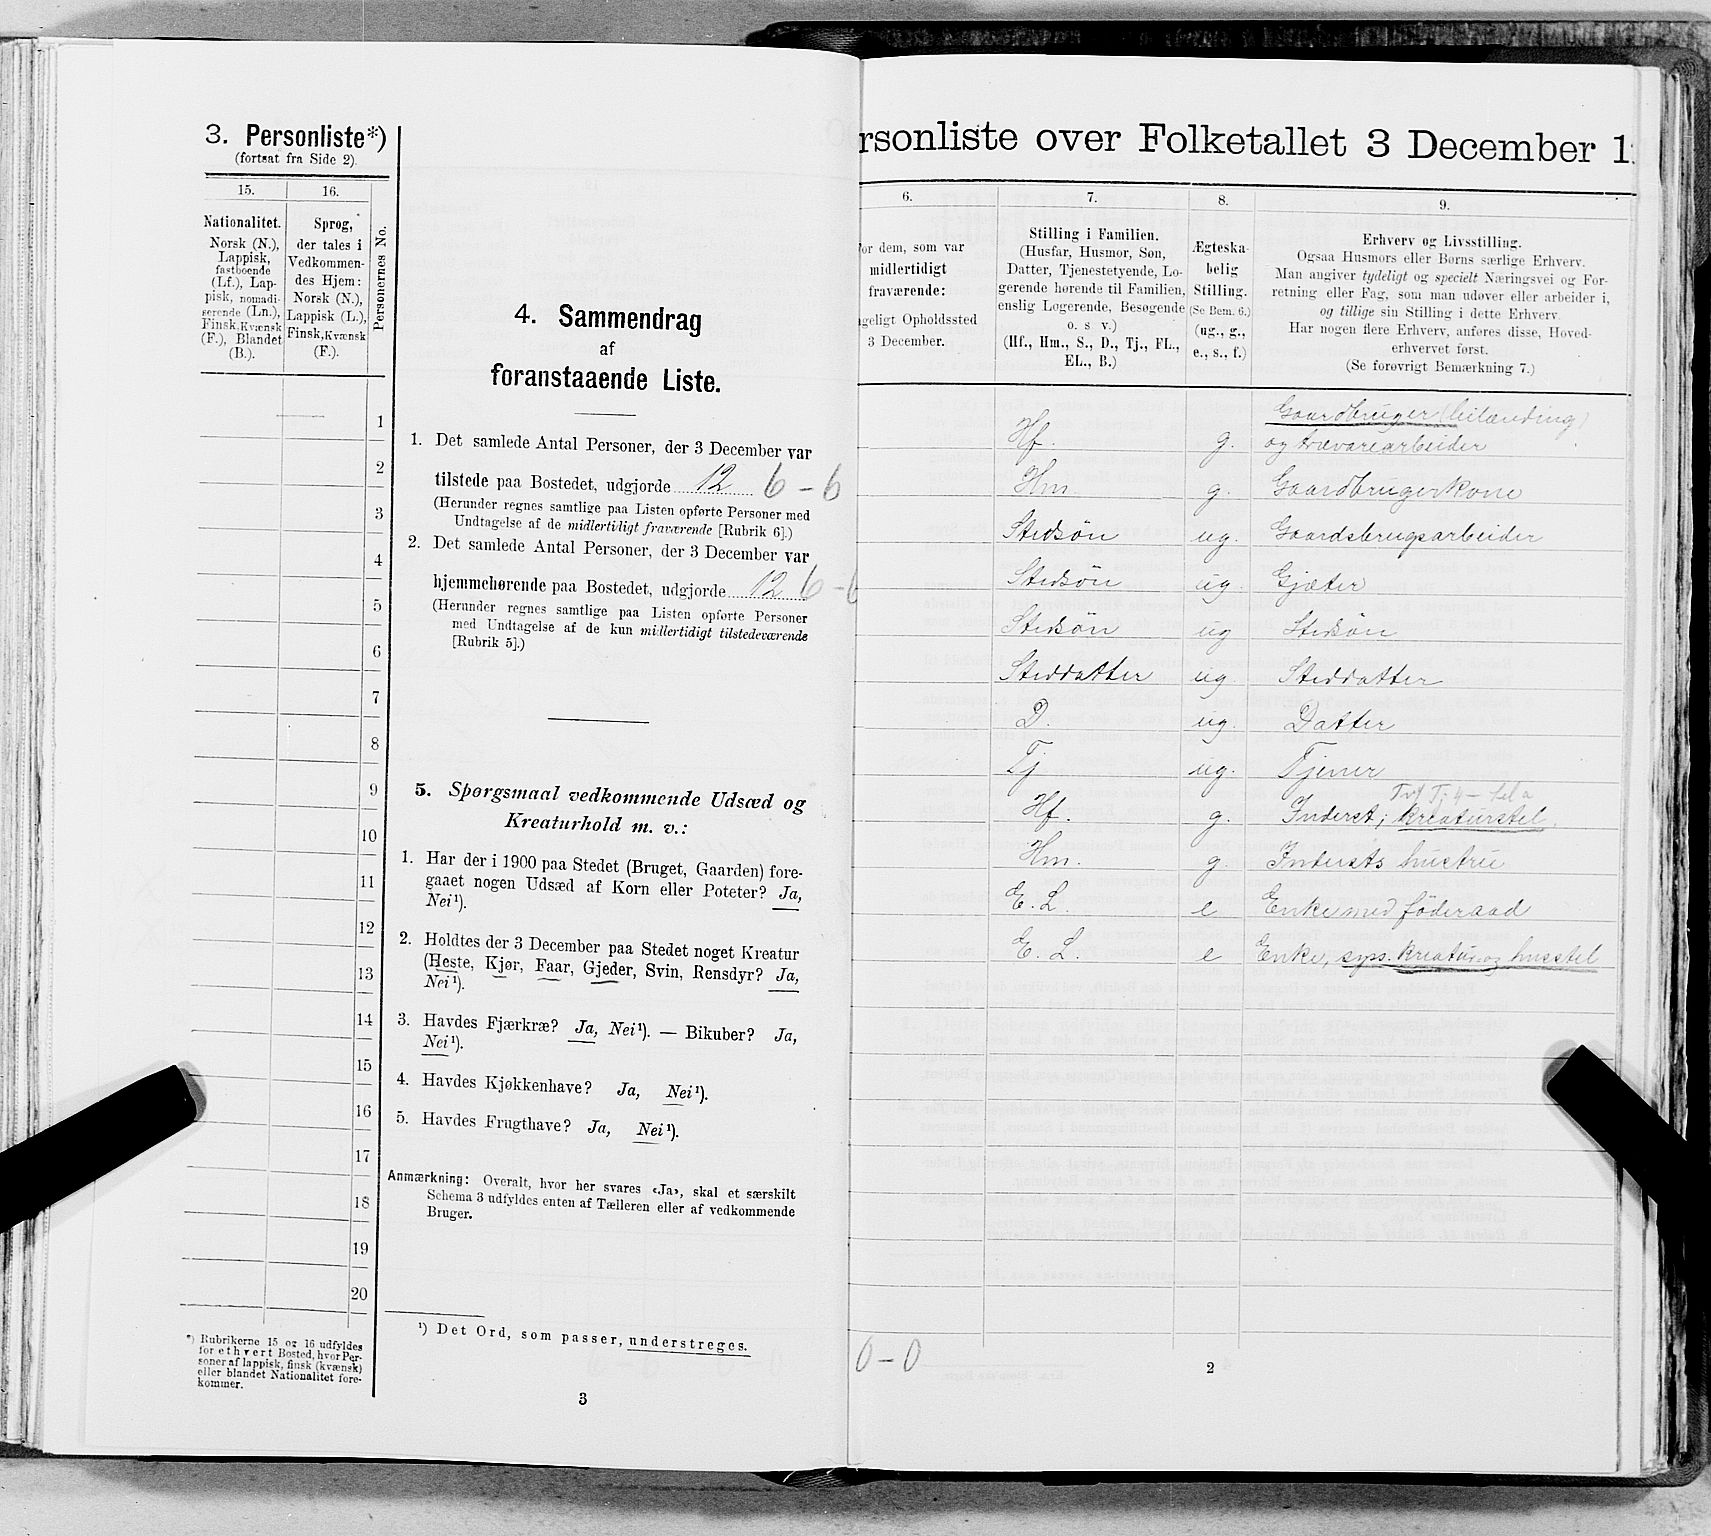 3. Personliste*)
(fortsat fra Side 2).
15.
16.
Personernes No.
Nationalitet.
Norsk (N.),
Lappisk,
fastboende
(Lf.), Lap-
pisk, nomadi-
serende (Ln.),
Finsk, Kvænsk
(F.), Blandet
(B.).
Sprog,
der tales i
Vedkommen-
des Hjem:
Norsk (N.),
Lappisk (L.),
Finsk, Kvænsk
(F.).
1
2
3
4
5
6
7
8
9
10
11
12
13
14
15
16
17
18
19
20
*) Rubrikerne 15 og 16 udfyldes
for ethvert Bosted, hvor Per-
soner af lappisk, finsk (kvænsk)
eller blandet Nationalitet fore-
kommer.
4. Sammendrag
af
foranstaaende Liste.
1. Det samlede Antal Personer, der 3 December var
tilstede paa Bostedet, udgjorde 12 6-6
(Herunder regnes samtlige paa Listen opførte Personer med
Undtagelse af de midlertidigt fraværende [Rubrik 6].)
2. Det samlede Antal Personer, der 3 December var
hjemmehørende paa Bostedet, udgjorde 12 6-6
(Herunder regnes samtlige paa Listen opførte Personer
med Undtagelse af de kun midlertidigt tilstedeværende
[Rubrik 5].)
5. Spørgsmaal vedkommende Udsæd og
Kreaturhold m. v.:
1. Har der i 1900 paa Stedet (Bruget, Gaarden) fore-
gaaet nogen Udsæd af Korn eller Poteter? Ja,
Nei¹).
2. Holdtes der 3 December paa Stedet noget Kreatur
(Heste, Kjør, Faar, Gjeder, Svin, Rensdyr? Ja,
Nei¹).
3. Havdes Fjærkræ? Ja, Nei¹). — Bikuber? Ja,
Nei¹).
4. Havdes Kjøkkenhave? Ja, Nei¹).
5. Havdes Frugthave? Ja, Nei¹).
Anmærkning: Overalt, hvor her svares «Ja», skal et særskilt
Schema 3 udfyldes enten af Tælleren eller af vedkommende
Bruger.
¹) Det Ord, som passer, understreges.
3
rsonliste over Folketallet 3 December 1
6.
7.
8.
9.
or dem, som var
midlertidigt
fraværende:
geligt Opholdssted
3 December.
Stilling i Familien.
(Husfar, Husmor, Søn,
Datter, Tjenestetyende, Lo-
gerende hørende til Familien,
enslig Logerende, Besøgende
o. s v.)
(Hf., Hm., S., D., Tj., FL.,
EL., B.)
Ægteska-
belig
Stilling.
(Se Bem. 6.)
(ug., g.,
e., s., f.)
Erhverv og Livsstilling.
Ogsaa Husmors eller Børns særlige Erhverv.
Man angiver tydeligt og specielt Næringsvei og For-
retning eller Fag, som man udøver eller arbeider i,
og tillige sin Stilling i dette Erhverv.
Har nogen flere Erhverv, anføres disse, Hoved-
erhvervet først.
(Se forøvrigt Bemærkning 7.)
Gaardbruger (leilænding)
Hf. g. og trævarearbeider
Hm. g. Gaardbrugerkone
Stedsön ug. Gaardsbrugsarbeider
Stedsön ug. Gjæter
Stedsön ug Stedsön
Steddatter ug. Steddatter
D. ug. Datter
Tj ug. Tjener
Hf. g. Inderst, kreaturstel.
Hm. g. Indersts hustru
E. L. e Enke med föderaad
E. L. e Enke, sys. kreatur og husstel
0-0
2